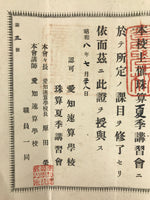 本校主催珠算夏季講習會ニ
於テ所定ノ課目ヲ修了セリ
依而茲ニ此證ヲ授與ス
昭和八年七月廿八日
認可 愛知速算學校
珠算夏季講習會
本會々長 愛知速算學校長 原田
本會講師 愛知速算學校
職員一同
第 號